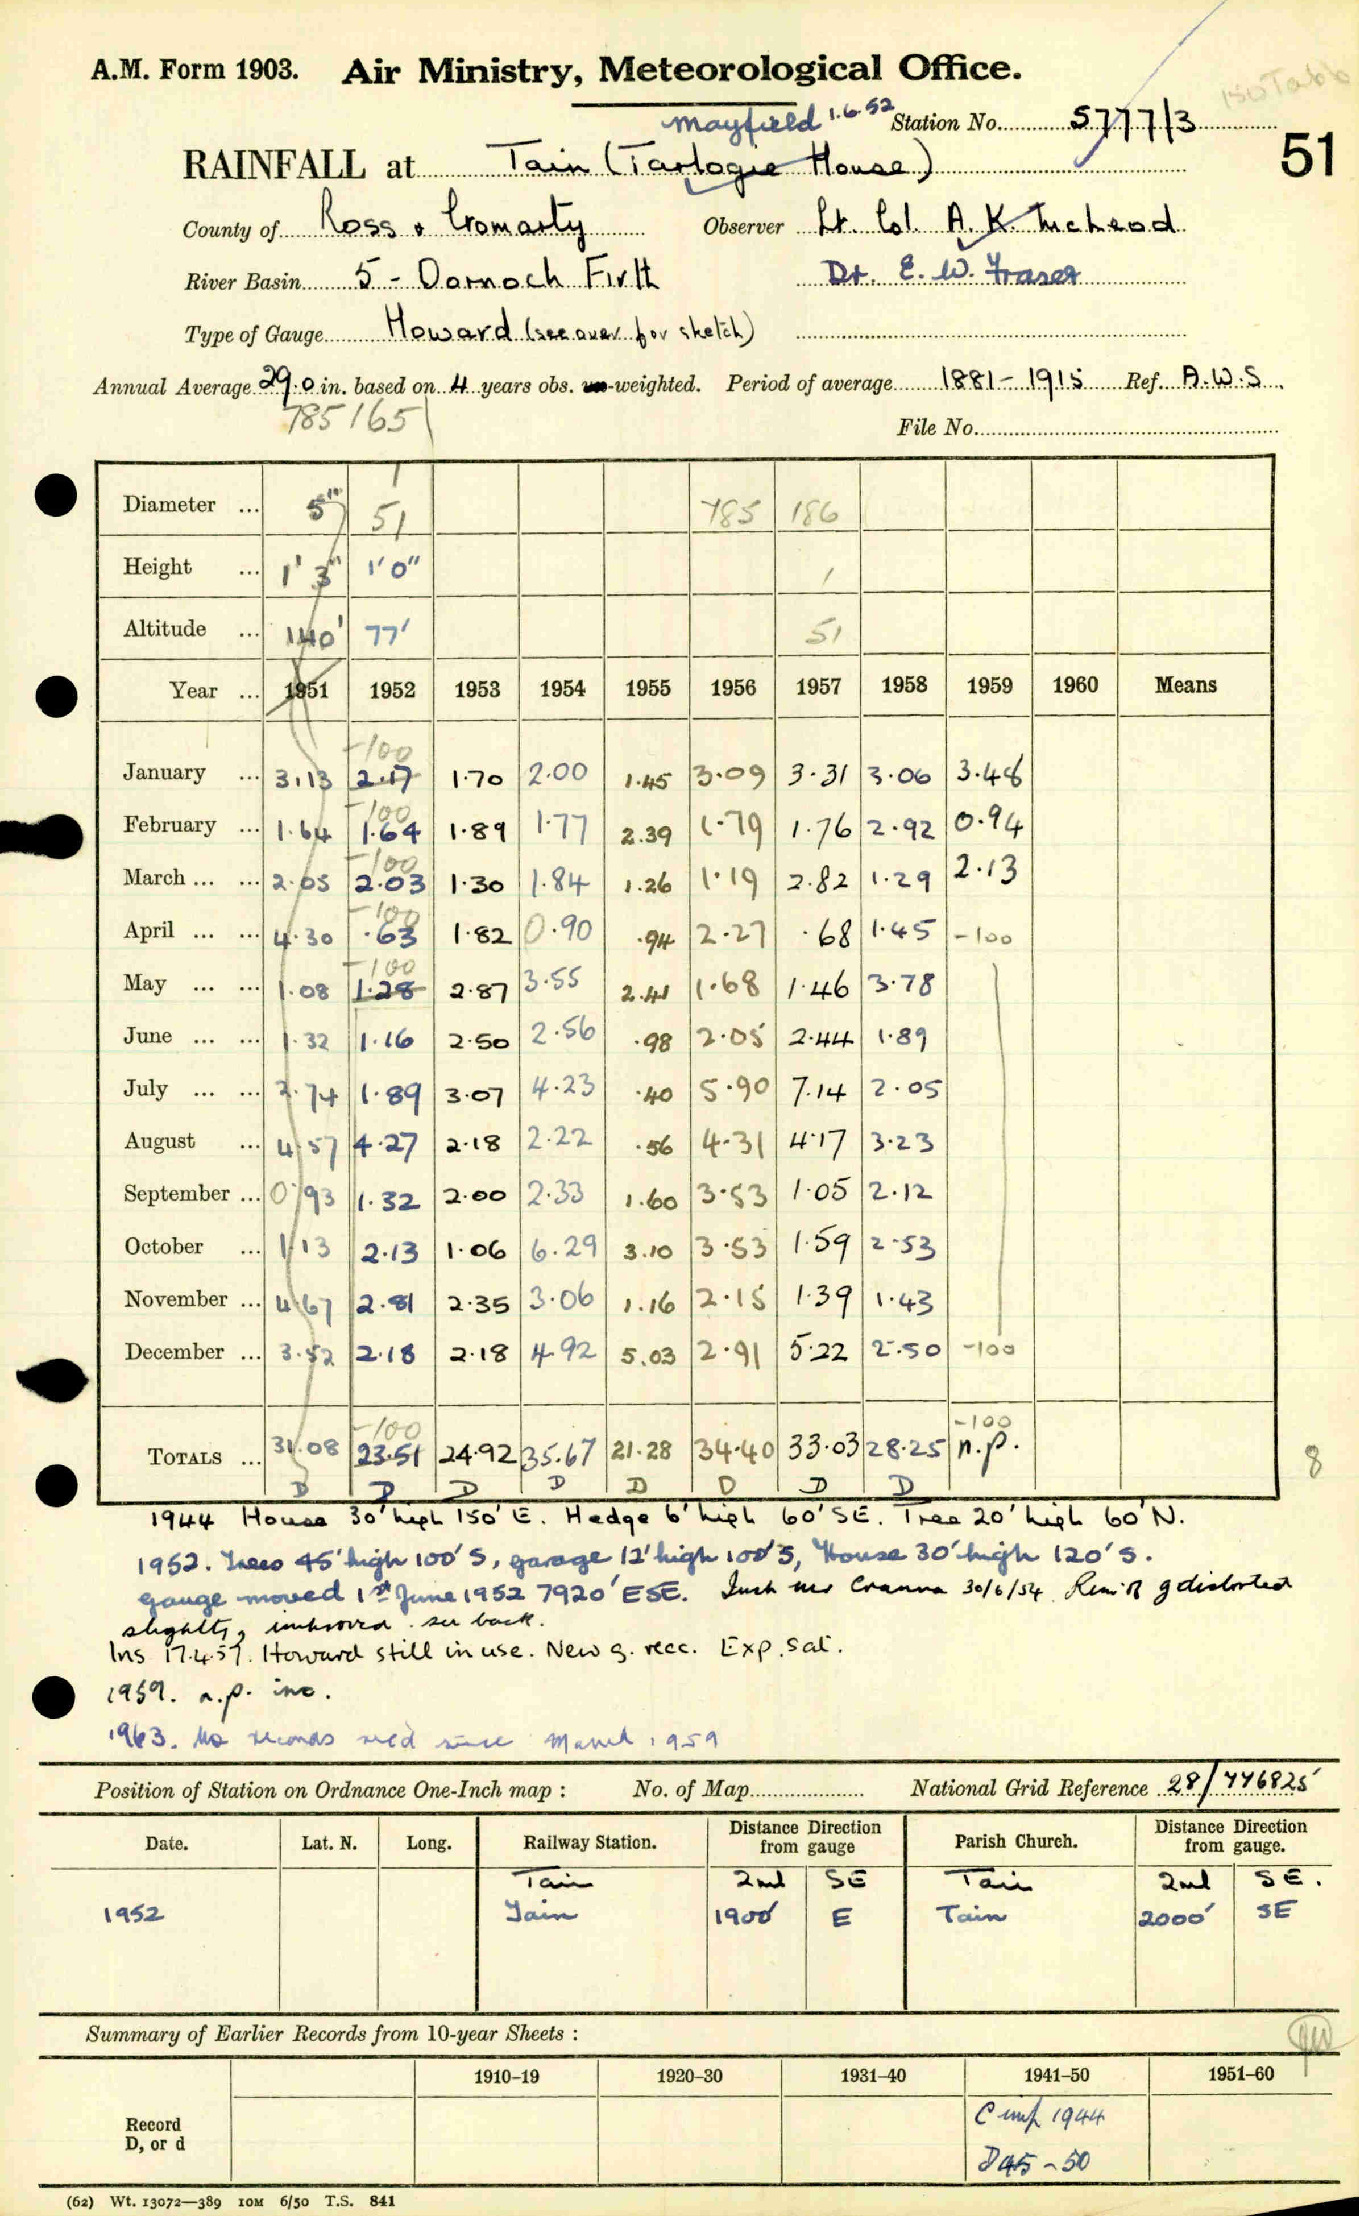 150 Tabb
A.M. Form 1903. Air Ministry, Meteorological Office.
Mayfield 1.6.52 Station No. 5777/3
RAINFALL at Tain (Tarlogie House) 51
County of Ross & Cromarty Observer Lt. Col. A. K. McLeod
River Basin 5 - Dornoch Firth Dr. E. W. Fraser
Type of Gauge Howard (see over for sketch)
Annual Average 29.0 in. based on 4 years obs. un-weighted. Period of average 1881-1915 Ref. A.W.S.
785165 File No.
Diameter ... 5" 51 785 186
Height ... 1' 3" 1' 0" 1
Altitude ... 140' 77' 51
Year ... 1951 1952 1953 1954 1955 1956 1957 1958 1959 1960 Means
-100
January ... 3.13 2.17 1.70 2.00 1.45 3.09 3.31 3.06 3.48
-100
February ... 1.64 1.64 1.89 1.77 2.39 1.79 1.76 2.92 0.94
-100
March ... ... 2.05 2.03 1.30 1.84 1.26 1.19 2.82 1.29 2.13
-100
April ... ... 4.30 .63 1.82 0.90 .94 2.27 .68 1.45 -100
-100
May ... ... 1.08 1.28 2.87 3.55 2.41 1.68 1.46 3.78
June ... ... 1.32 1.16 2.50 2.56 .98 2.05 2.44 1.89
July ... ... 2.74 1.89 3.07 4.23 .40 5.90 7.14 2.05
August ... 4.57 4.27 2.18 2.22 .56 4.31 4.17 3.23
September ... 0.93 1.32 2.00 2.33 1.60 3.53 1.05 2.12
October ... 1.13 2.13 1.06 6.29 3.10 3.53 1.59 2.53
November ... 4.67 2.81 2.35 3.06 1.16 2.15 1.39 1.43
December ... 3.52 2.18 2.18 4.92 5.03 2.91 5.22 2.50 -100
-100 -100
TOTALS ... 31.08 23.51 24.92 35.67 21.28 34.40 33.03 28.25 n.p. 8
D D D D D D D D
1944 House 30' high 150' E. Hedge 6' high 60' SE. Tree 20' high 60' N.
1952. Trees 45' high 100' S, garage 12' high 100' S, House 30' high 120' S.
gauge moved 1st June 1952 7920' ESE. Insp Mr Cranna 30/6/54 Rim of g distorted
slightly, improved. see back.
Ins 17.4.57. Howard still in use. New g. recc. Exp. sat.
1959. n.p. inc.
1963. No records rec'd since March 1959
Position of Station on Ordnance One-Inch map : No. of Map National Grid Reference 28/776825
Date. Lat. N. Long. Railway Station. Distance Direction from gauge Parish Church. Distance Direction from gauge.
Tain 2ml SE Tain 2ml SE.
1952 Tain 1900' E Tain 2000' SE
Summary of Earlier Records from 10-year Sheets :
1910-19 1920-30 1931-40 1941-50 1951-60
Record
D, or d
C imp 1944
D 45-50
(62) Wt. 13072—389 10M 6/50 T.S. 841